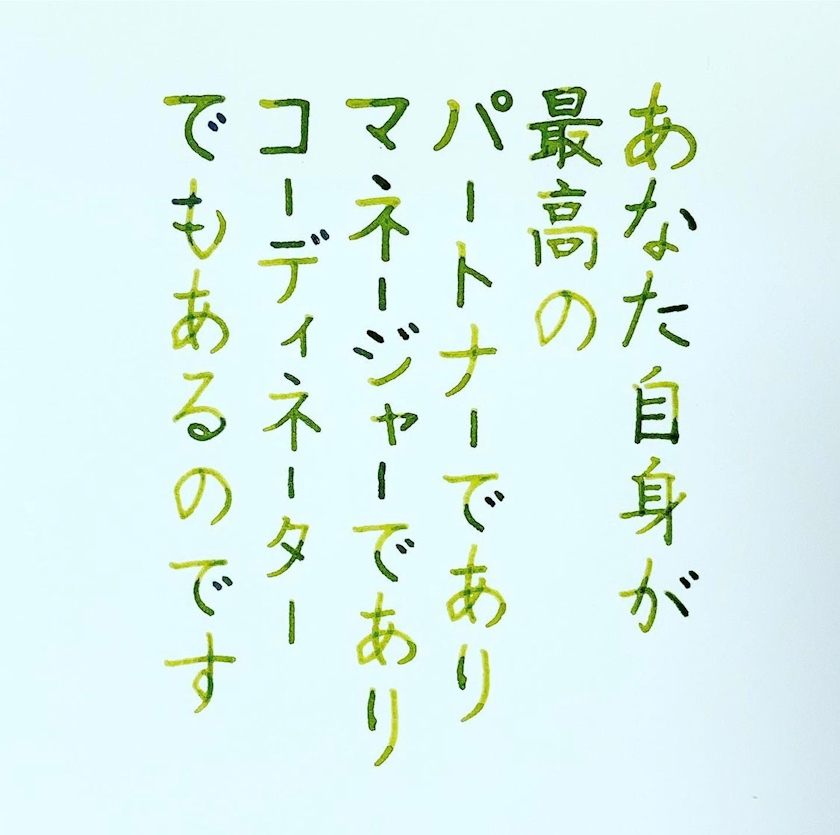 あなた自身が
最高の
パートナーであり
マネージャーであり
コーディネーター
でもあるのです